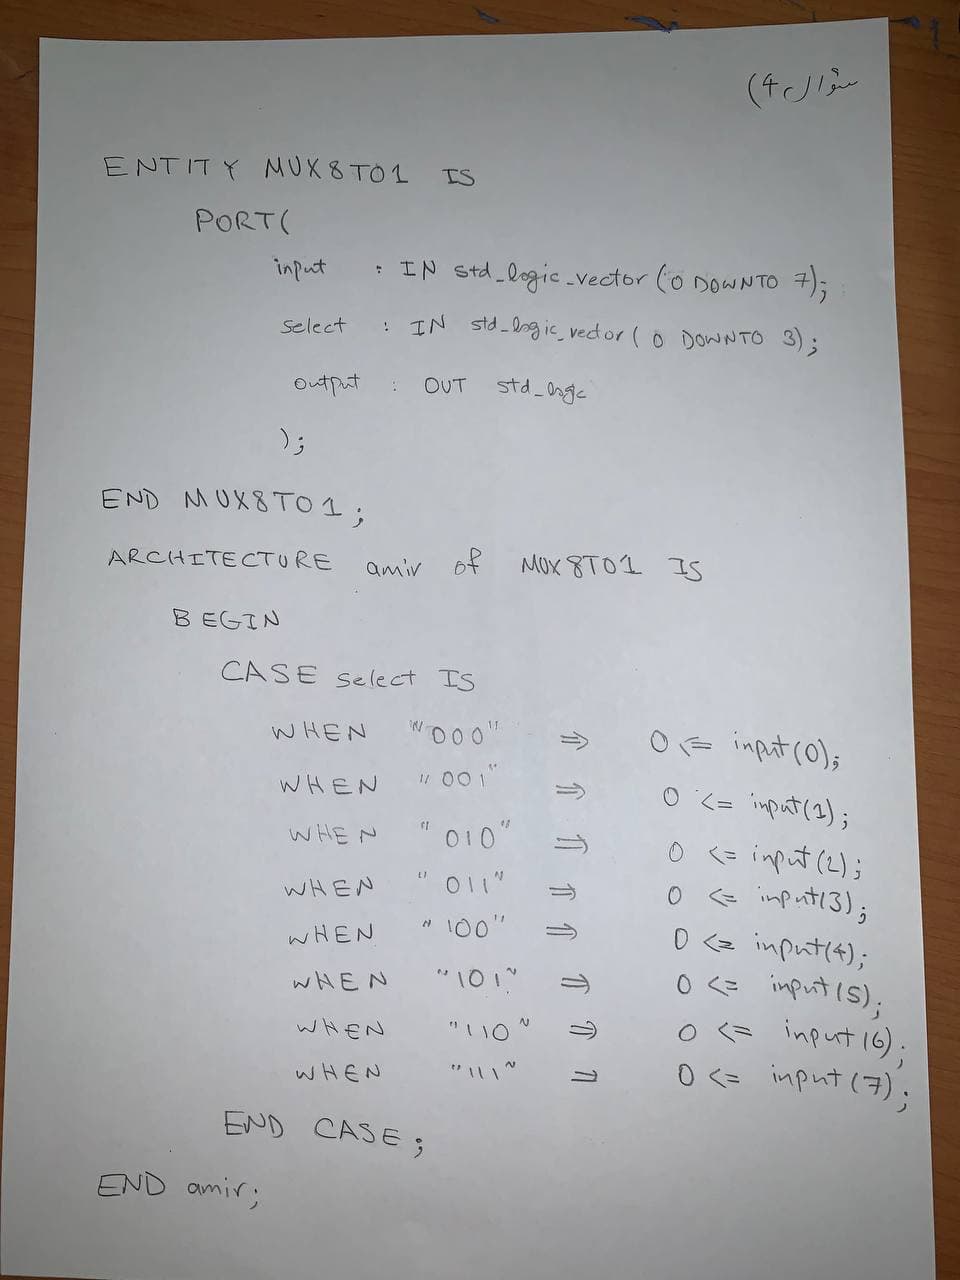 سؤال 4)
ENTITY MUX8TO1 IS
PORT(
input : IN std_logic_vector (0 DOWNTO 7);
select : IN std_logic_vector ( 0 DOWNTO 3);
output : OUT std_logic
);
END MUX8TO1;
ARCHITECTURE amir of MUX8TO1 IS
BEGIN
CASE select IS
WHEN "000" => O <= input(0);
WHEN "001" => O <= input(1);
WHEN "010" => O <= input(2);
WHEN "011" => O <= input(3);
WHEN "100" => O <= input(4);
WHEN "101" => O <= input(5);
WHEN "110" => O <= input(6);
WHEN "111" => O <= input(7);
END CASE;
END amir;